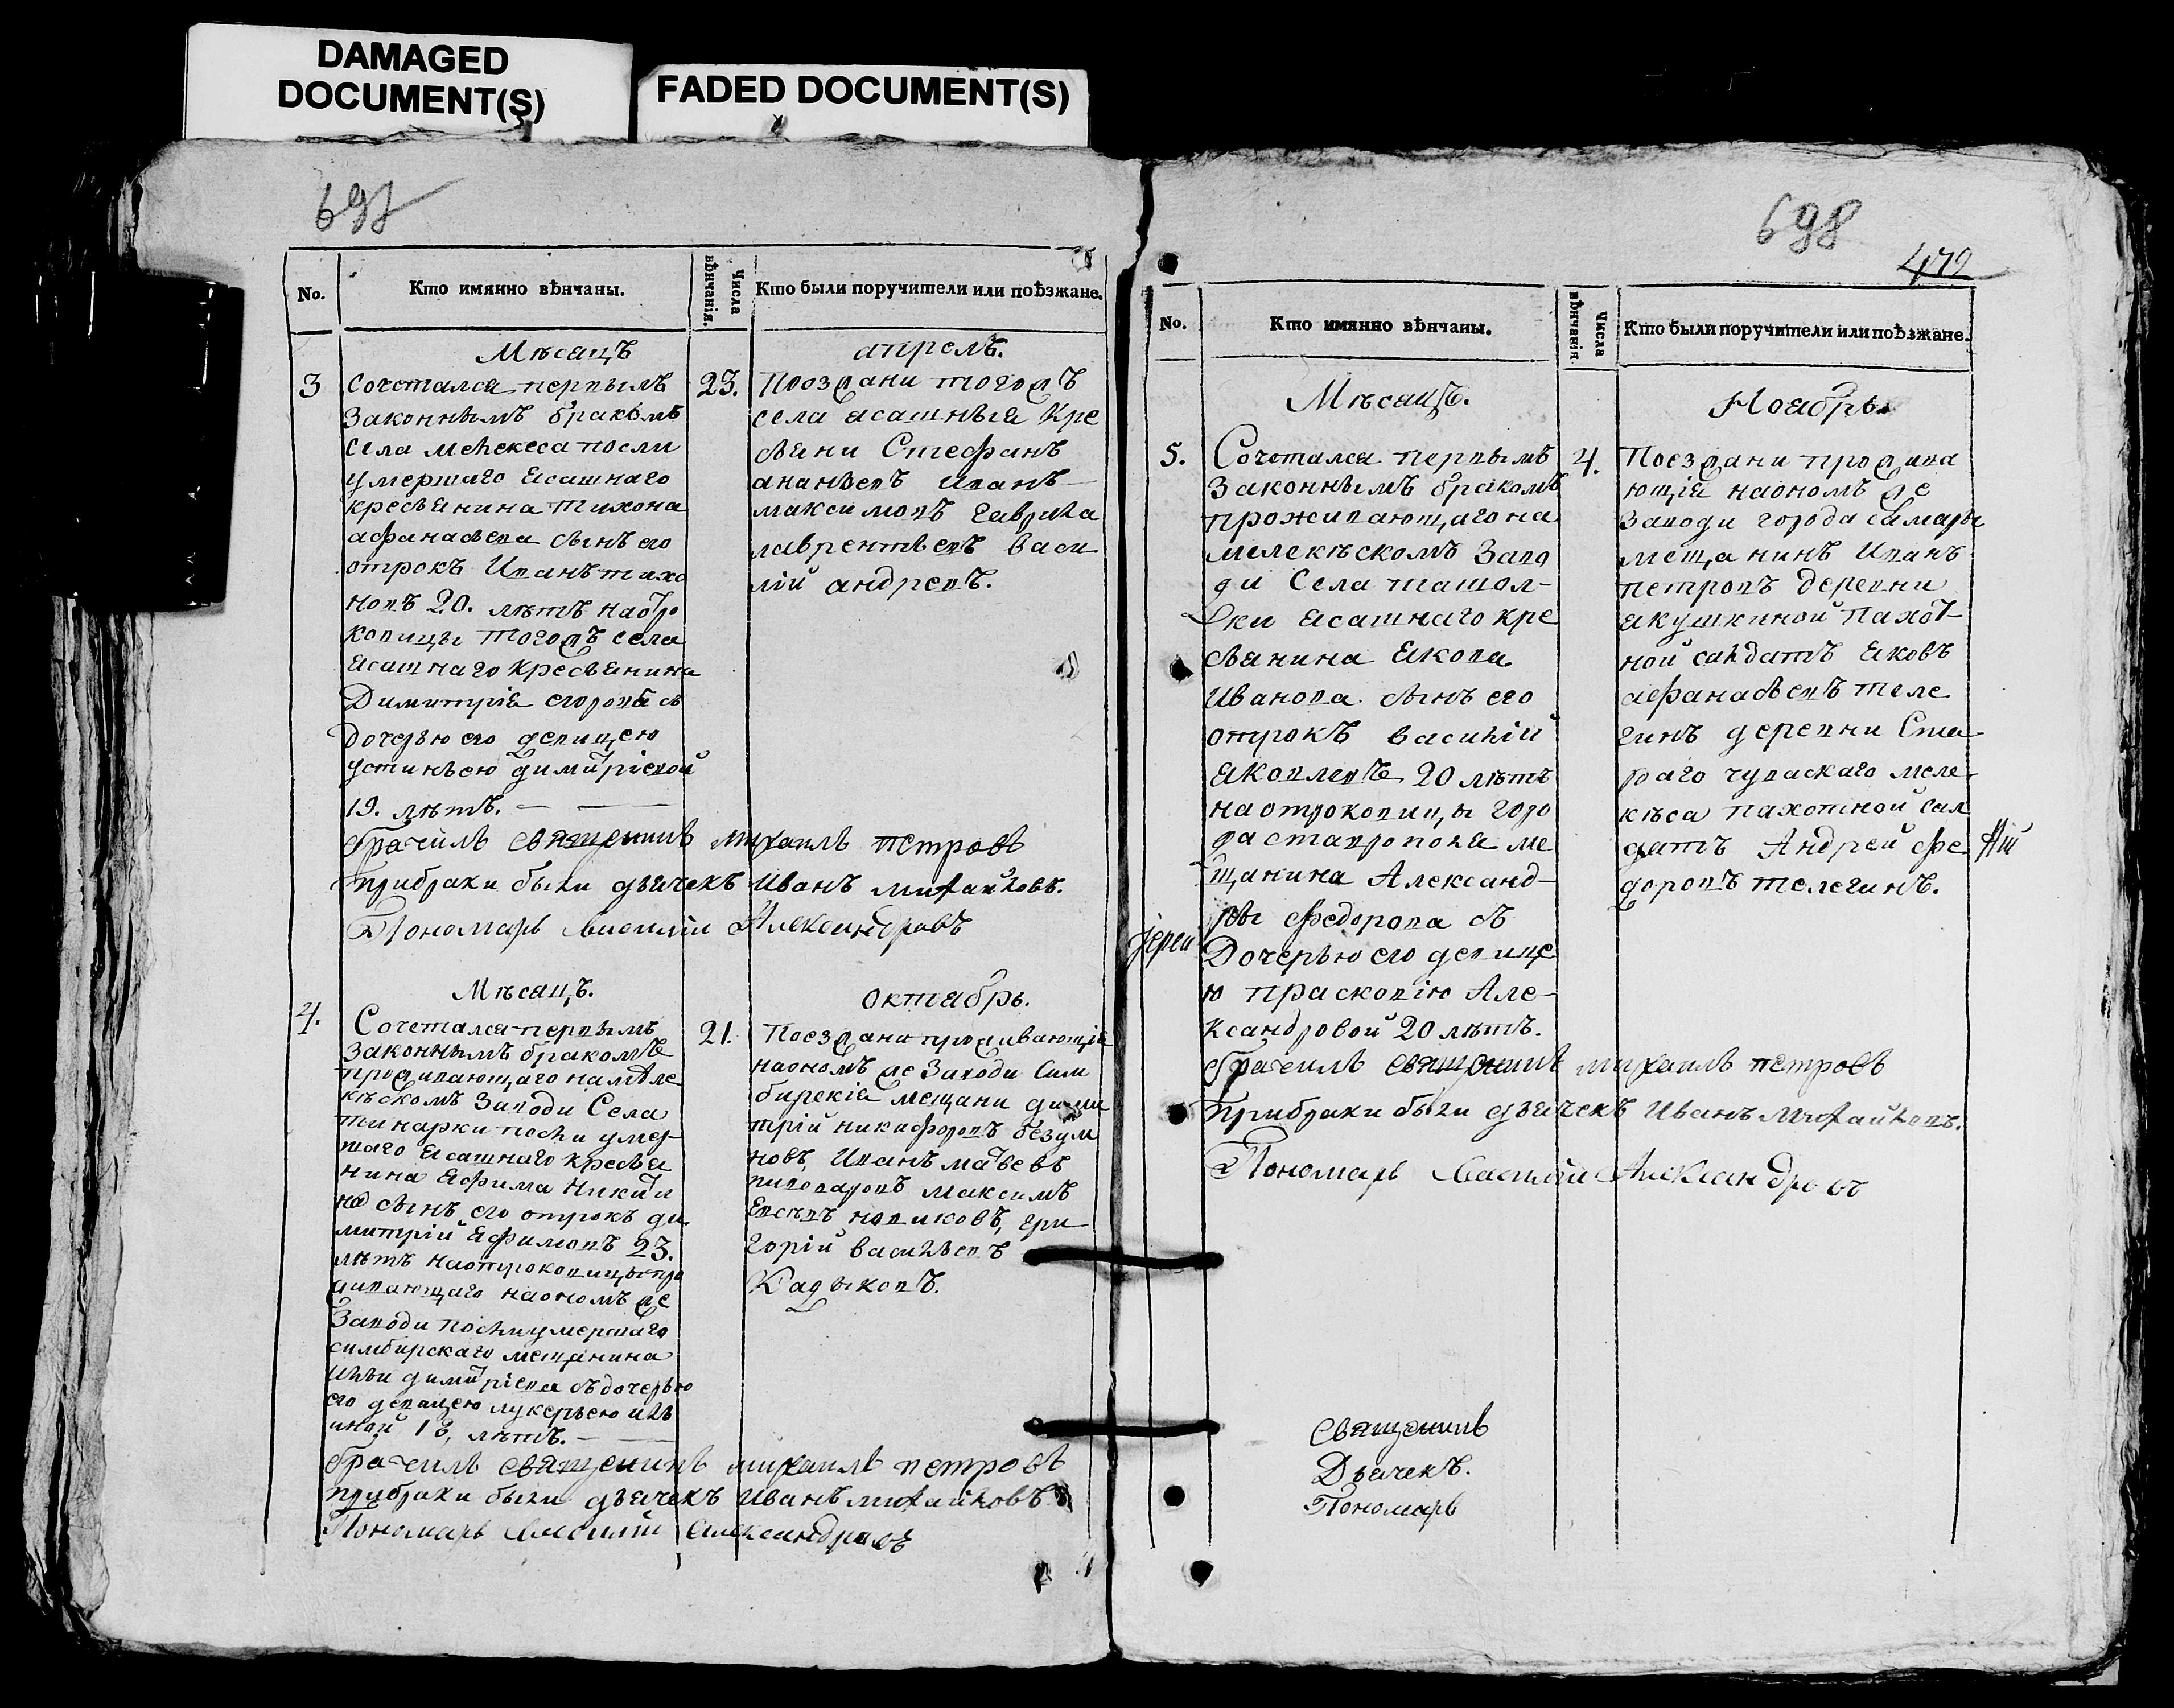 DAMAGED
DOCUMENT(S)
FADED DOCUMENT(S)
697
No.
Кто имянно вѣнчаны.
Числа вѣнчанія.
Кто были поручители или поѣзжане.
Мѣсяцъ
апрель.
3
сочетался первымъ
законнымъ бракомъ
села мелекеса после
умершаго ясашнаго
кресьянина тихона
афанасьева сынъ его
отрокъ Иванъ тихо
новъ 20. лѣтъ наотро
ковицы тогожъ села
ясашнаго кресьянина
Димитрія егорова съ
дочерью его девицею
устиньею димитріевой
19. лѣтъ.
23.
Поезжани тогожъ
села ясашныя кре
сьяни Стефанъ
ананьевъ иванъ
максимовъ гаврила
лаврентьевъ васи
лій андревъ.
брачилъ священникъ михаилъ петровъ
прибраки были дьячекъ Иванъ михайловъ.
Пономарь Василій Александровъ
Мѣсяцъ.
октябрь.
4.
Сочетался первымъ
законнымъ бракомъ
проживающаго намеле
кѣскомъ заводи Села
тинарки посли умер
шаго ясашнаго кресья
нина Ефима Никити
на сынъ его отрокъ ди
митрій Ефимовъ 23.
лѣтъ наотроковицы про
живающаго наономъ же
Заводи послиумершаго
симбирскаго мещанина
Ильи димитріева съдочерью
его девицею лукерьею иль
иной 18, лѣтъ.
21.
Поезжани проживающія
наономъ же Заводи Сим
бирскія мещани дими
трій никифоровъ безум
новъ, Иванъ матвевъ
пивоваровъ максимъ
Евсѣвъ новиковъ, гри
горій васильевъ
Кадыковъ.
брачилъ священникъ михаилъ петровъ
прибраки были дьячекъ Иванъ михайловъ
Пономарь Василій Александровъ
698
472
No.
Кто имянно вѣнчаны.
Числа вѣнчанія.
Кто были поручители или поѣзжане.
Мѣсяцъ.
Ноябрь.
5.
Сочетался первымъ
Законнымъ бракомъ
проживающаго на
мелекѣскомъ заво
ди Села ташол-
ки ясашнаго кре
сьянина Якова
Иванова сынъ его
отрокъ василій
Яковлевъ 20 лѣтъ
наотроковицы горо
да ставрополя ме
щанина Александ-
ры Федорова съ
Дочерью его девице
ю прасковію Але-
ксандровой 20 лѣтъ.
4.
Поезжани прожива
ющія наономъ же
Заводи города самары
мещанинъ Иванъ
петровъ деревни
якушкиной пахот-
ной салдатъ яковъ
афанасьевъ теле
гинъ деревни Ста-
раго чуваскаго меле-
кѣса пахотной сал
датъ Андрей фе
доровъ телегинъ.
Іереи
брачилъ священникъ михаилъ петровъ
прибраки были дьячекъ Иванъ михайловъ.
Пономарь Василій Александровъ
Священникъ
Дьячекъ.
Пономарь